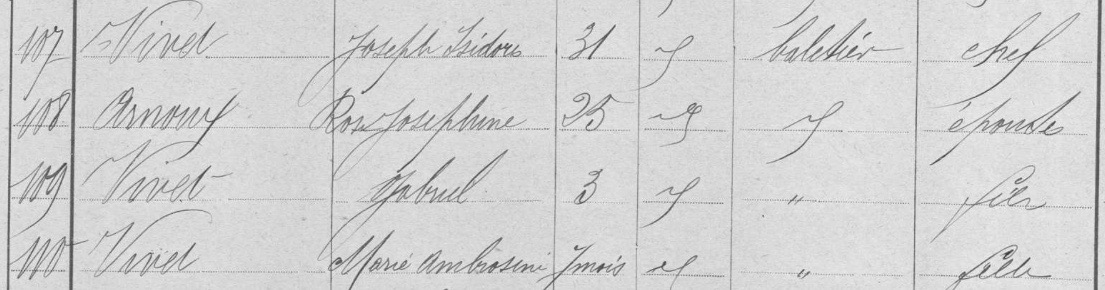 107 Vivet Joseph Isidore 31 " caletier chef
108 Arnoux Rose Josephine 25 " " épouse
109 Vivet Gabriel 3 " " fils
110 Vivet Marie Ambrosine 7 mois " " fille